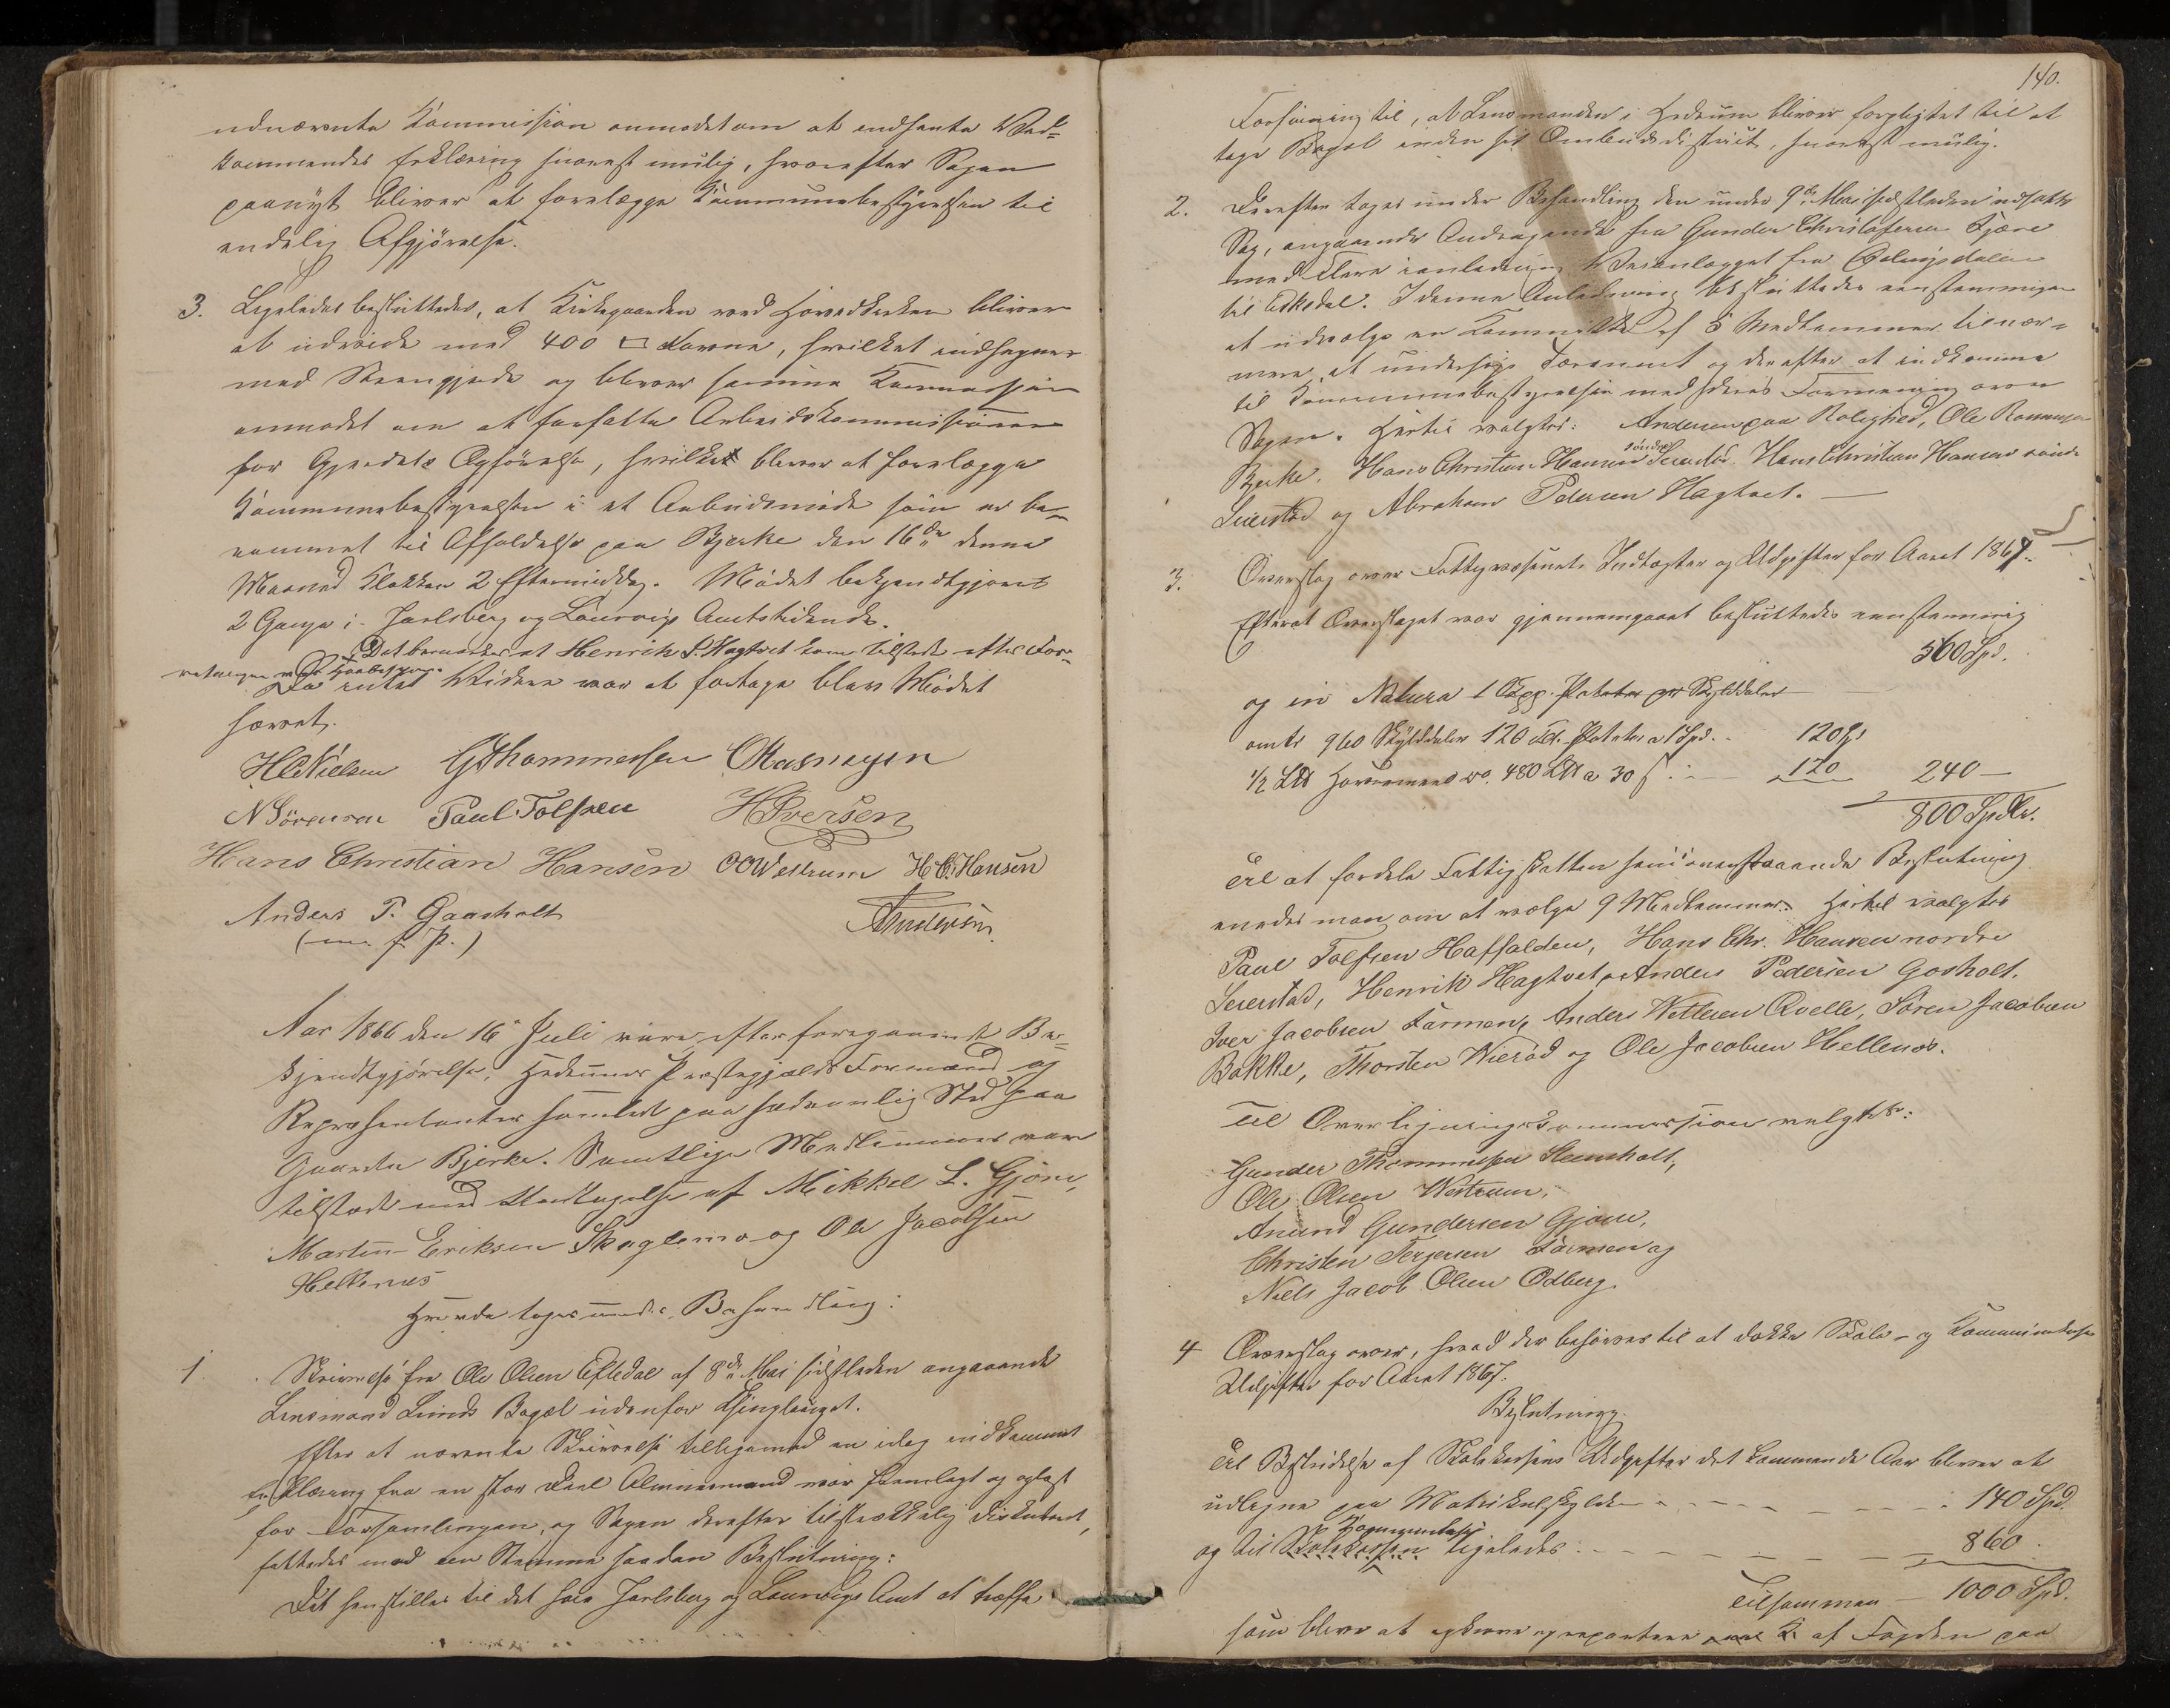 udnævnte Kommission anmodet om at indhente Ved-
kommendes Erklæring snarest mulig, hvorefter Sagen
paanyt bliver at forelægge Kommunebestyrelsen til
endelig Afgjørelse.
3. Ligeledes besluttedes, at Kirkegaarden ved Hovedkirken bliver
at udvide med 400 □ Favne, hvilket indhegnes
med Steengjerde og bliver samme Kommission
anmodet om at forfatte
for Gjerdets Opførelse, hvilket bliver at forelægge
Kommunebestyrelsen i et Arbeidsmøde som er be-
rammet til Afholdelse paa Bjerke den 16de denne
Maaned Klokken 2 Eftermiddag. Mødet bekjendtgjøres
2 Gange i Jarlsberg og Laurvigs Amtstidende.
Det bemærkes at Henrik P. Hagtvet kom tilstede efter For-
retningens
Da intet Videre var at foretage blev Mødet
hævet.
HCNielsen GThommesen ORasmusen
N Sörensen Paul Tolfsen HIversen
Hans Christian Hansen OOWestrum H. C. Hansen
Anders P. Gaasholt Andersen
(m. f. P.)
Aar 1866 den 16 Juli vare efter foregaaende Be-
kjendtgjørelse, Hedrums Præstegjælds Formænd og
Repræsentanter samlede paa sædvanlig Sted paa
Gaarden Bjerke. Samtlige Medlemmer vare
tilstede med Undtagelse af Mikkel L. Gjöne,
Martin Eriksen Skaglemo og Ole Jacobsen
Hellenes
Hvorda toges under Behandling:
1 Skrivelse fra Ole Olsen Eftedal af 8de Mai sidstleden angaaende
Lensmand Lunds Bopæl udenfor Thinglauget.
Efter at nævnte Skrivelse tilligemed en idag indkommet
Erklæring fra en stor Deel Almuesmænd var fremlagt og oplæst
for Forsamlingen, og Sagen derefter tilstrækkelig diskuteret,
fattedes med een Stemme saadan Beslutning:
Det henstilles til det høie Jarlsberg og Laurvigs Amt at træffe
140.
Forføining til, at Lensmanden i Hedrum bliver forpligtet til at
tage Bopæl inden sit Ombudsdistrict, snarest mulig.
2. Derefter toges under Behandling den under 9de Mai sidstleden udsatte
Sag, angaaende Andragende fra Gunder Christofersen Kjære
med Flere i anledning Veianlægget fra
til Eikedal. I denne Anledning besluttedes eenstemmigen
at udvælge en Kommitte af 5 Medlemmer til nær-
mere at undersøge Terrænet og derefter at indkomme
til Kommunebestyrelsen med deres Formening over
Sagen. Hertil valgtes: Andersen paa Rolighed, Ole Rasmusen
Bjerke, Hans Christian Hansen søndre Seierstad. Hans Christian Hansen nordre
Seierstad og Abraham Pedersen Hagtvet. —
3. Overslag over Fattigvæsenets Indtægter og Udgifter for Aaret 1867.
Efterat Overslaget var gjennemgaaet besluttedes eenstemmig
560 Spd.
og in Natura 1 Skpp. Poteter pr Skylddaler —
omtr 960 Skylddaler 120 Tdr. Poteter a 1 Spd. .. 120 Sp
1/2 LW Havremeel ca. 480 LW a 30 s .. — 120 240 —
800 Spdlr.
Til at fordele Fattigskatten som ovenstaaende Beslutning
enedes man om at vælge 9 Medlemmer. Hertil valgtes
Paul Tolfsen Haffalden, Hans Chr. Hansen nordre
Seierstad, Henrik Hagtvet, Anders Pedersen Gosholt.
Iver Jacobsen Farmen, Anders Wetlesen Qvelle, Sören Jacobsen
Bakke, Thorsten Wieröd og Ole Jacobsen Hellenes.
Til Overligningskommission valgtes:
Gunder Thommesen Steensholt,
Ole Olsen Westrum,
Anund Gundersen Gjone,
Christen Terjesen Farmen og
Niels Jacob Olsen Odberg.
4 Overslag over, hvad der behøves til at dække Skole- og Kommunekassens
Udgifter for Aaret 1867.
Beslutning.
Til Bestridelse af Skolekassens Udgifter det kommende Aar bliver at
udligne paa Matrikulskylden — — — 140 Spd.
og til Kommunekassen ligeledes: — — — 860.
Tilsammen — 1000 Spd.
som bliver at opkræve og repartere af Fogden paa